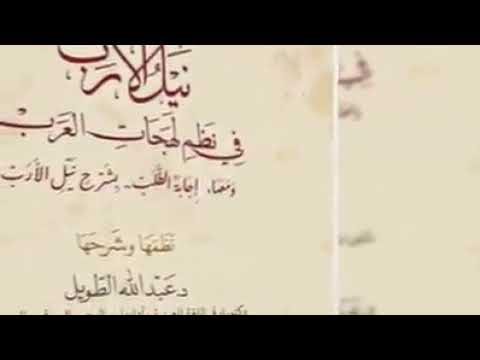 نَيْلُ الأَرَبْ
فِي نَظْمِ لَهَجَاتِ العَرَبْ
وَمَعَهَا: إِجَابَةُ الطَّلَبْ - بِشَرْحِ نَيْلِ الأَرَبْ
نَظَمَهَا وَشَرَحَهَا
د. عَبْدُ اللهِ الطَّوِيل
فِي